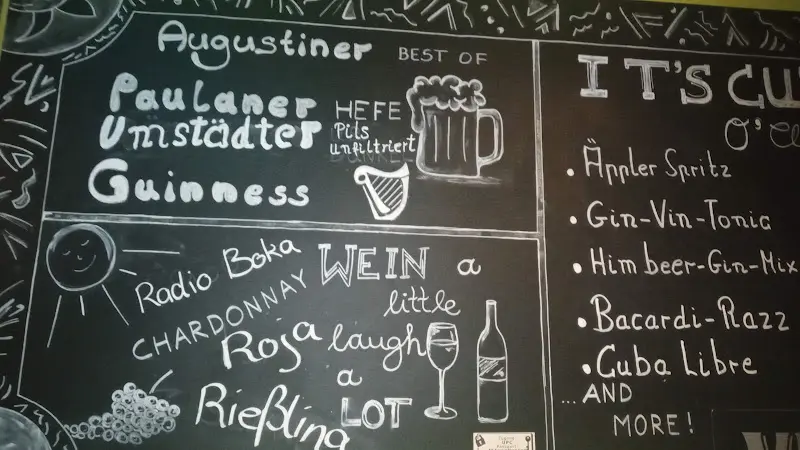 Augustiner BEST OF
Paulaner HEFE
Umstädter Pils unfiltriert
Guinness
Radio Boka
CHARDONNAY
Roja
Rießling
WEIN a
little
laugh
a
LOT
IT'S CU
O'
Äppler Spritz
Gin-Vin-Tonic
Himbeer-Gin-Mix
Bacardi-Razz
Cuba Libre
...AND
MORE!